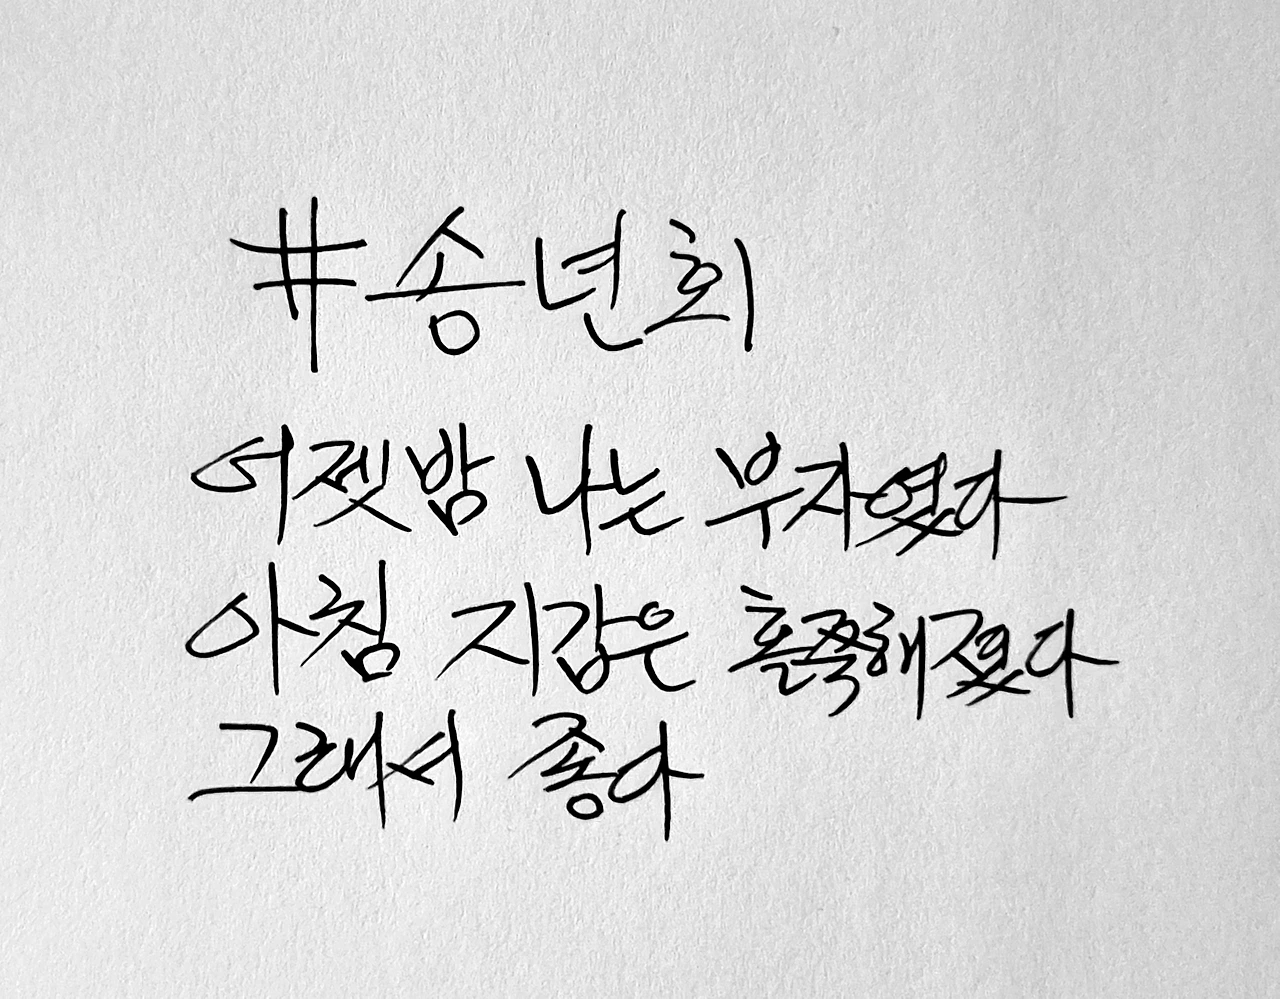 #송년회
어젯밤 나는 부자였다
아침 지갑은 홀쭉해졌다
그래서 좋아